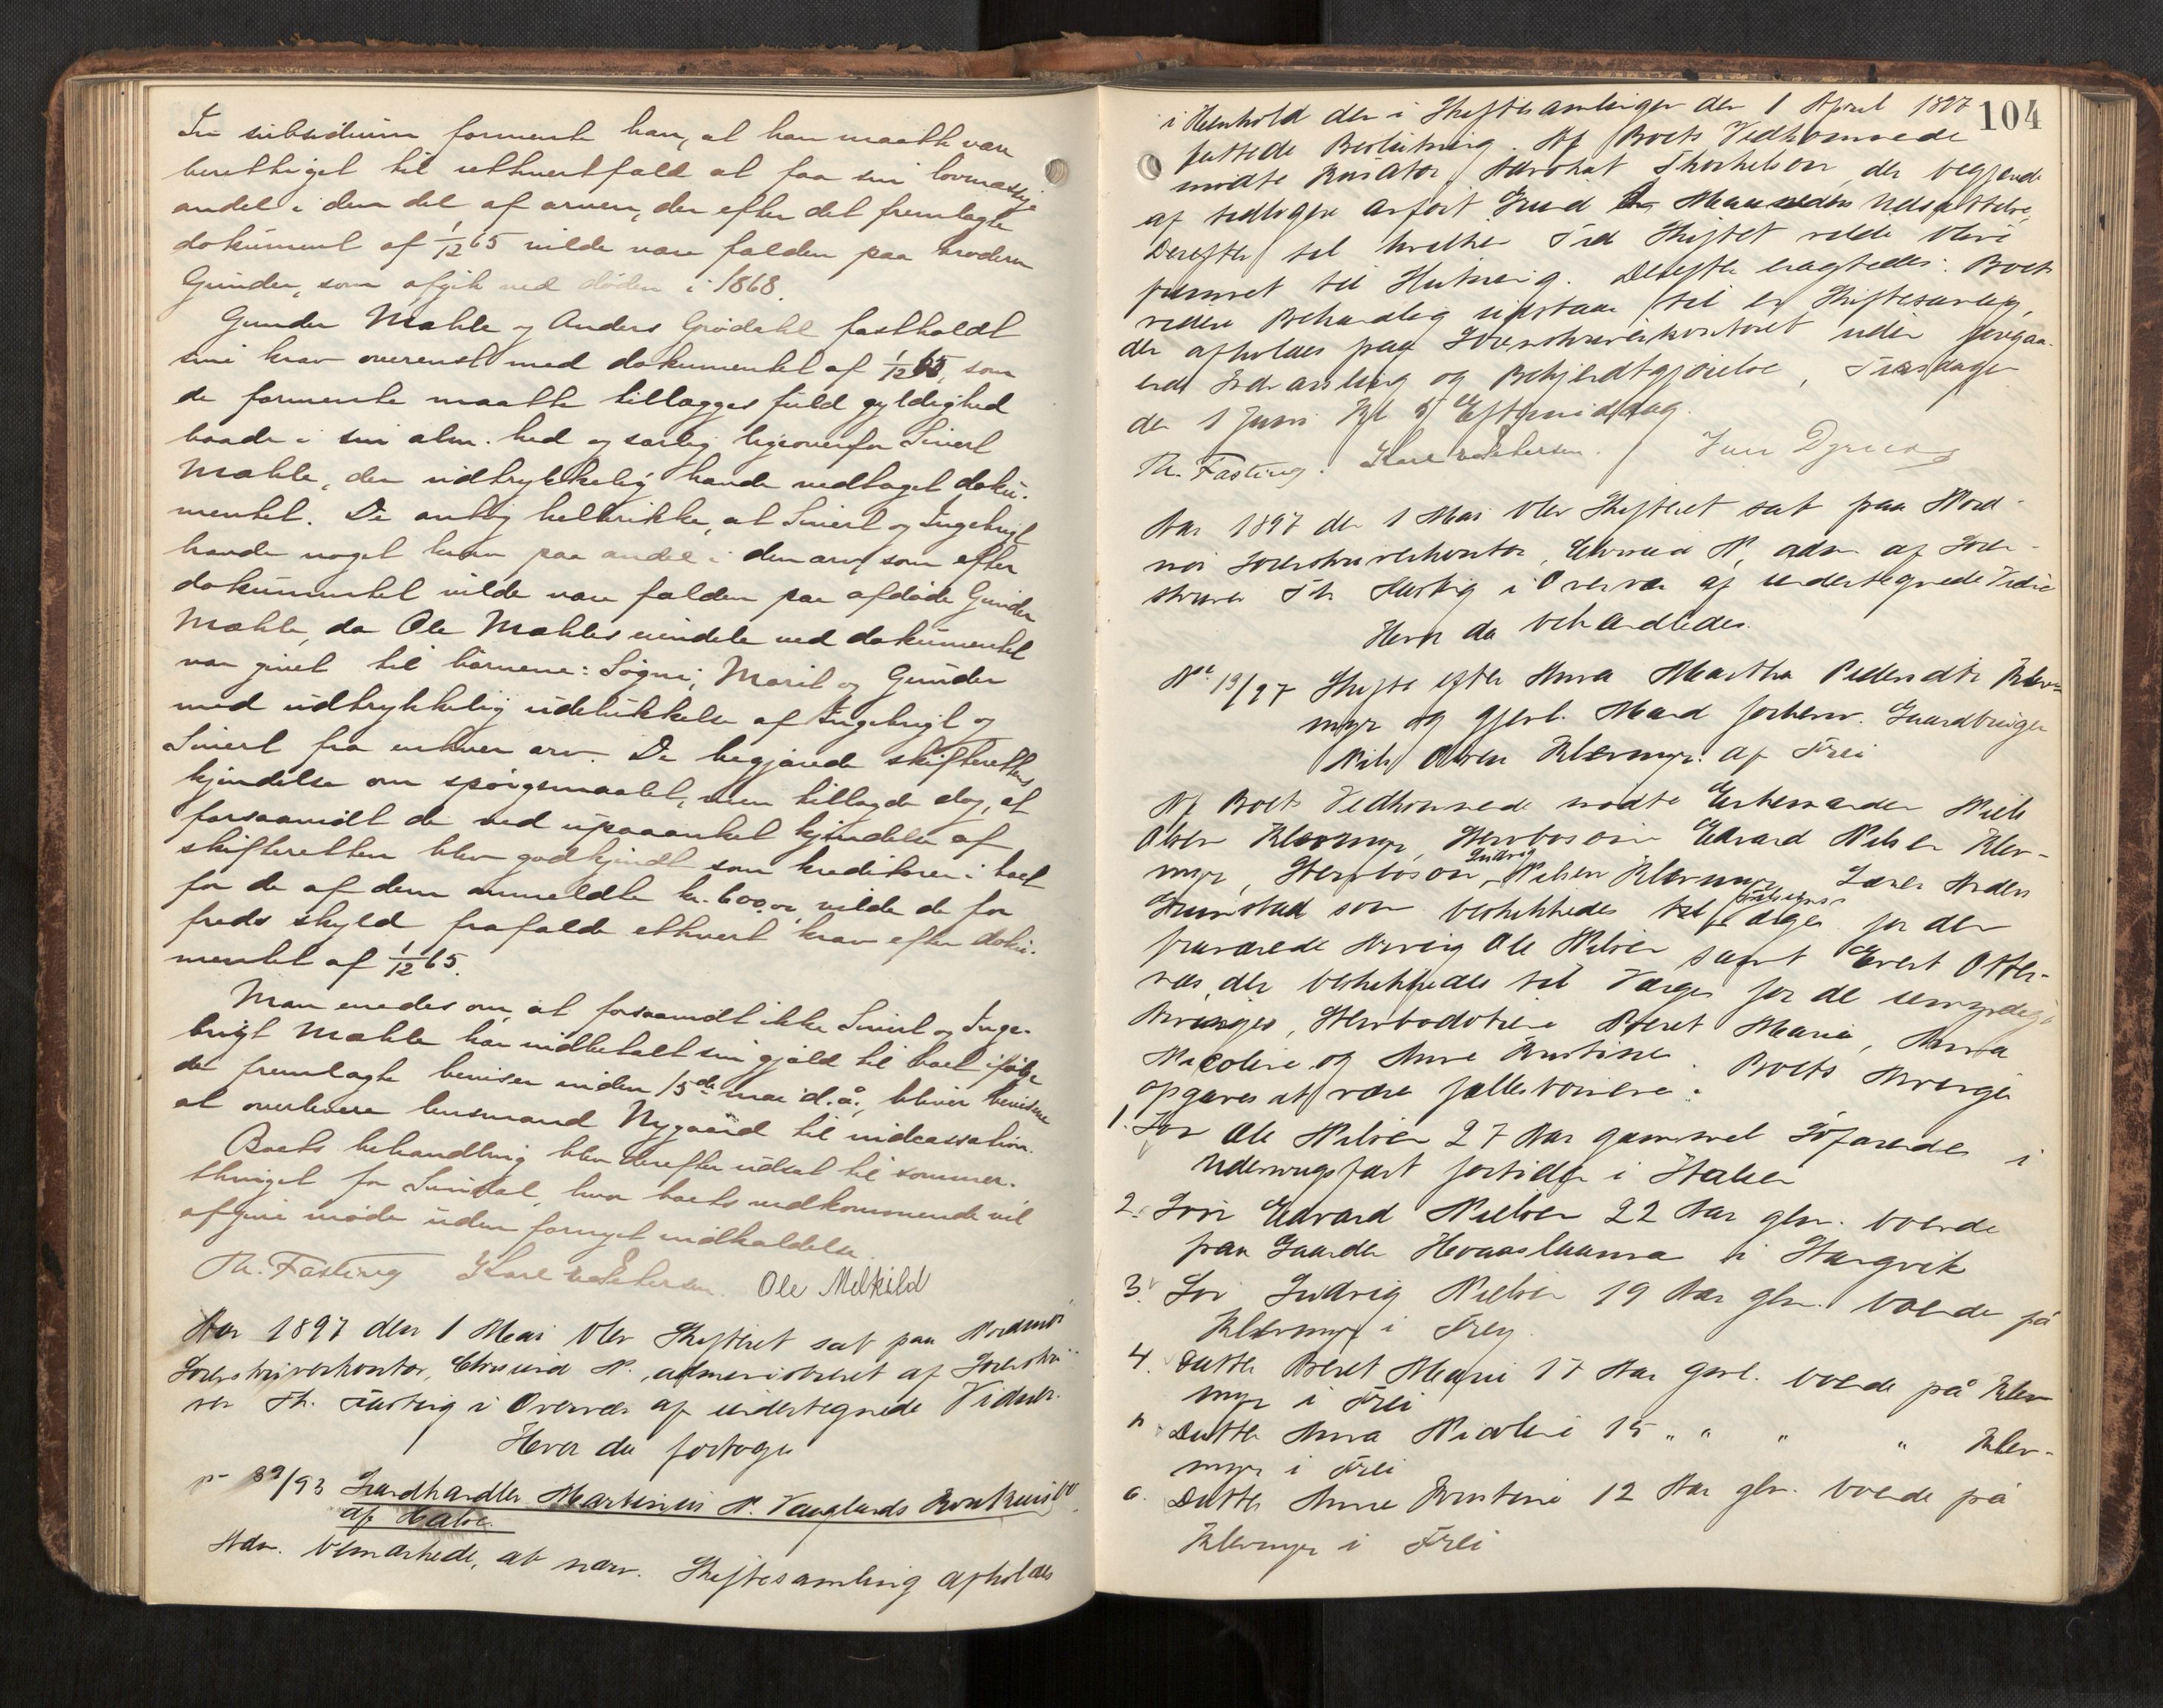 In subsidium formente han, at han maatte være
berettiget til i ethvertfald at faa sin lovmæssige
andel i den del af arven, der efter det fremlagte
dokument af 1/12 65 vilde være falden paa broderen
Gunder, som afgik ved døden i 1868.
Gunder Mæhle og Anders Grødahl fastholdt
sine krav overenst med dokumentet af 1/12 65, som
de formente maatte tillægges fuld gyldighed
baade i sin alm.hed og særlig ligeoverfor Sivert
Mæhle, der udtrykkelig havde vedtaget doku-
mentet. De antog hellerikke, at Sivert og Ingebrigt
havde noget krav paa andel i den arv, som efter
dokumentet vilde være falden paa afdøde Gunder
Mæhle, da Ole Mæhles eiendele ved dokumentet
var givet til børnene: Sogni, Marit og Gunder
med udtrykkelig udelukkelse af Ingebrigt og
Sivert fra enhver arv. De begjærede skifterettens
kjendelse om spørgsmaalet, men tillagde dog, at
forsaavidt de ved upaaanket kjendelse af
skifteretten blev godkjendt som kreditorer i boet
for de af dem anmeldte kr. 600,00, vilde de for
freds skyld frafalde ethvert krav efter doku-
mentet af 1/12 65.
Man enedes om, at forsaavidt ikke Sivert og Inge-
brigt Mæhle har indbetalt sin gjæld til boet ifølge
de fremlagte beviser inden 15de mai d.å., bliver beviserne
at overlevere lensmand Nygaard til indcassation.
Boets behandling blev derefter udsat til sommer-
thinget for Sundal, hvor boets vedkommende vil
afgive møde uden fornyet indkaldelse.
Th. Fasting Karl Pettersen. Ole Melkild
Aar 1897 den 1 Mai blev Skifteret sat paa Nordmør
Sorenskriverkontor, Chrsund N., administreret af Sorenskri-
ver Th. Fasting i Overvær af undertegnede Vidner.
Hvor da foretoges
No 89/93 Landhandler Martinius N. Vauglands Konkursbo
af Halse.
Adm. bemærkede, at nærv. Skiftesamling afholdes
104
i Henhold den i Skiftesamlingen den 1 April 1897
fattede Beslutning. Af Boets Vedkommende
mødte Kurator, Advokat Thorkelson, der begjærede
af tidligere anført Grund Maaneders Udsættelse,
Derefter til hvilken Tid Skiftet vilde blive
fremmet til Slutning. Derefter eragtedes: Boets
videre Behandling udstaar til en Skiftesamling,
der afholdes paa Sorenskriverkontoret uden foregaa-
ende Indvarsling og Bekjendtgjørelse, Tirsdagen
den 1 Juni Kl 5 Eftermiddag.
Th. Fasting. Karl Pettersen.
Aar 1897 den 1 Mai blev Skifteret sat paa Nord-
mør Sorenskriverkontor, Chrsund N, adm. af Soren-
skriver Th Fasting i Overvær af undertegnede Vidner
Hvor da behandledes.
No 19/97 Skifte efter Anna Martha Pedersdtr Klev-
myr og gjenl. Mand forhenv. Gaardbruger
Nils Olsen Klevmyr af Frei
Af Boets Vedkommende mødte Enkemanden Niels
Olsen Klevmyr, Stervbosøn Edvard Nilsen Klev-
myr, Stervbosøn Ludvig Nilsen Klevmyr, Lærer Anders
som beskikkedes til Værge for den
fraværende Arving Ole Nilsen samt Evert Otter-
næs, der beskikkedes til Værge for de umyndige
Arvinger, Stervbodøttre Beret Marie, Anna
Nicoline og Anne Kristine. Boets Arvinger
opgaves at være fællesbørnene:
1. Søn Ole Nilsen 27 Aar gammel Søfarende i
Udenrigsfart fortiden i
2. Søn Edvard Nielsen 22 Aar glm. boende
paa Gaarden i Stangvik
3. Søn Ludvig Nielsen 19 Aar glm. boende på
Klevmyr i Frey.
4. Datter Beret Marie 17 Aar gml. boende på Klev-
myr i Frei
" Datter Anna Nicoline 15 " " " " Klev-
myr i Frei
6. Datter Anne Kristine 12 Aar glm. boende på
Klevmyr i Frei